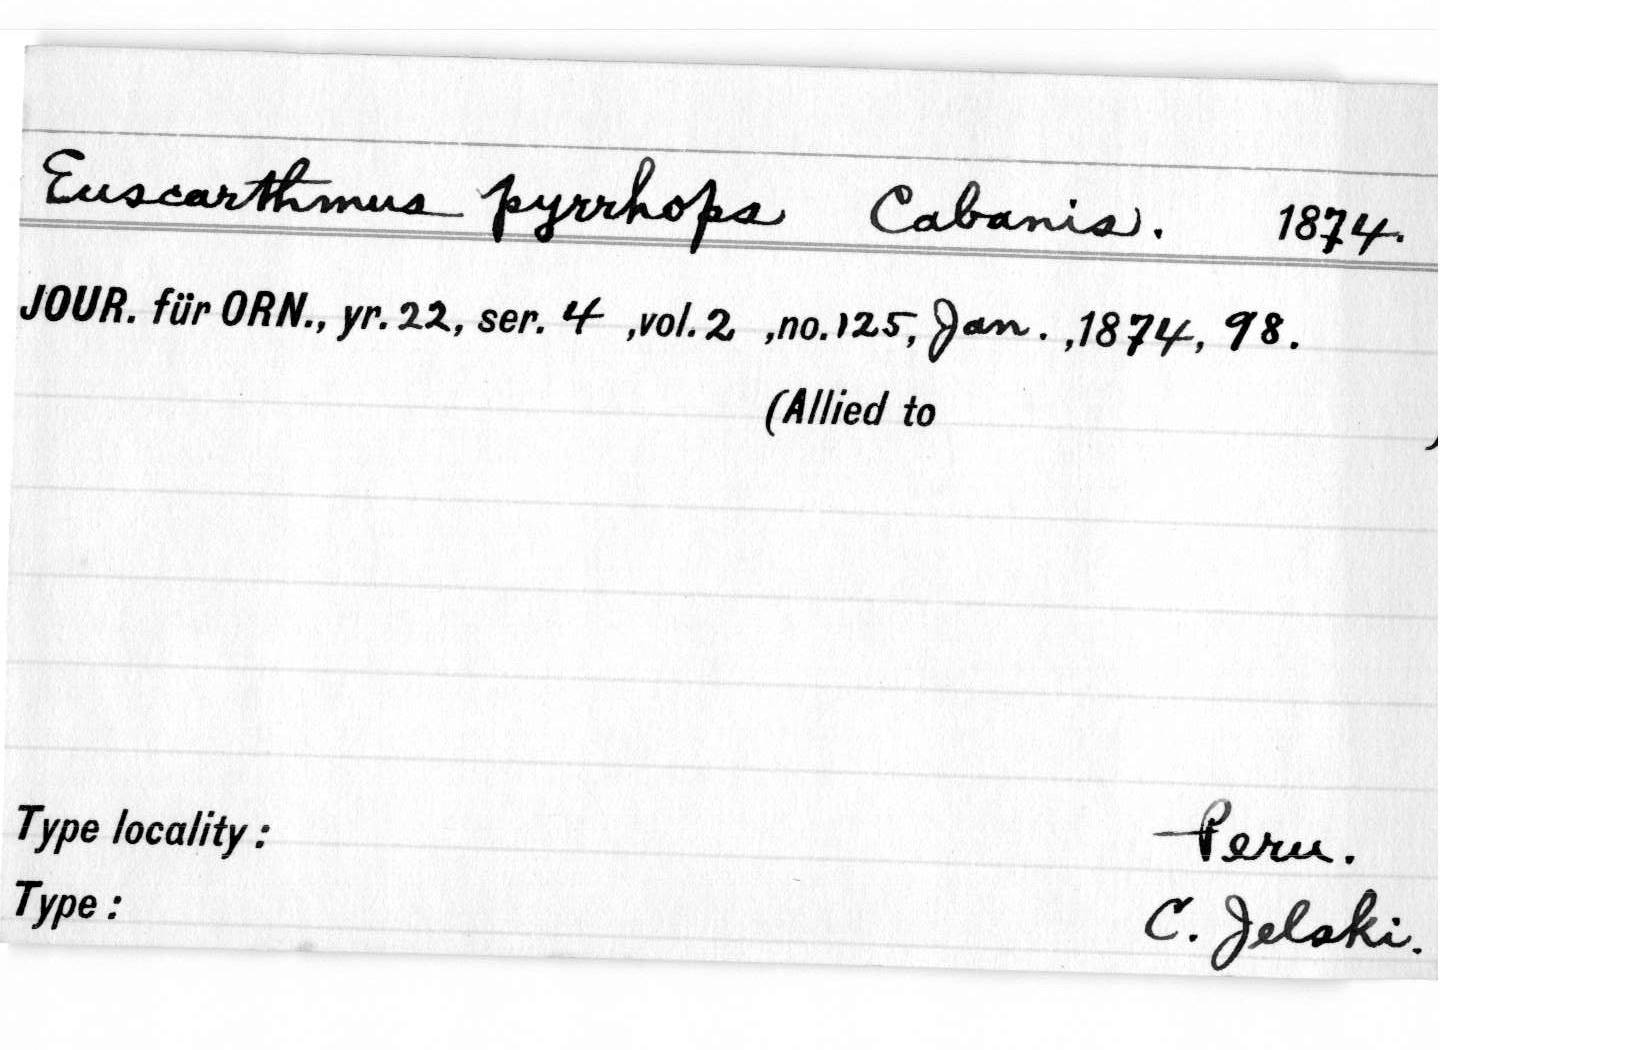 Euscarthmus pyrrhops Cabanis. 1874.
JOUR. für ORN., yr. 22, ser. 4 ,vol. 2 ,no. 125, Jan. ,1874, 98.
(Allied to )
Type locality : Peru.
Type : C. Jelski.